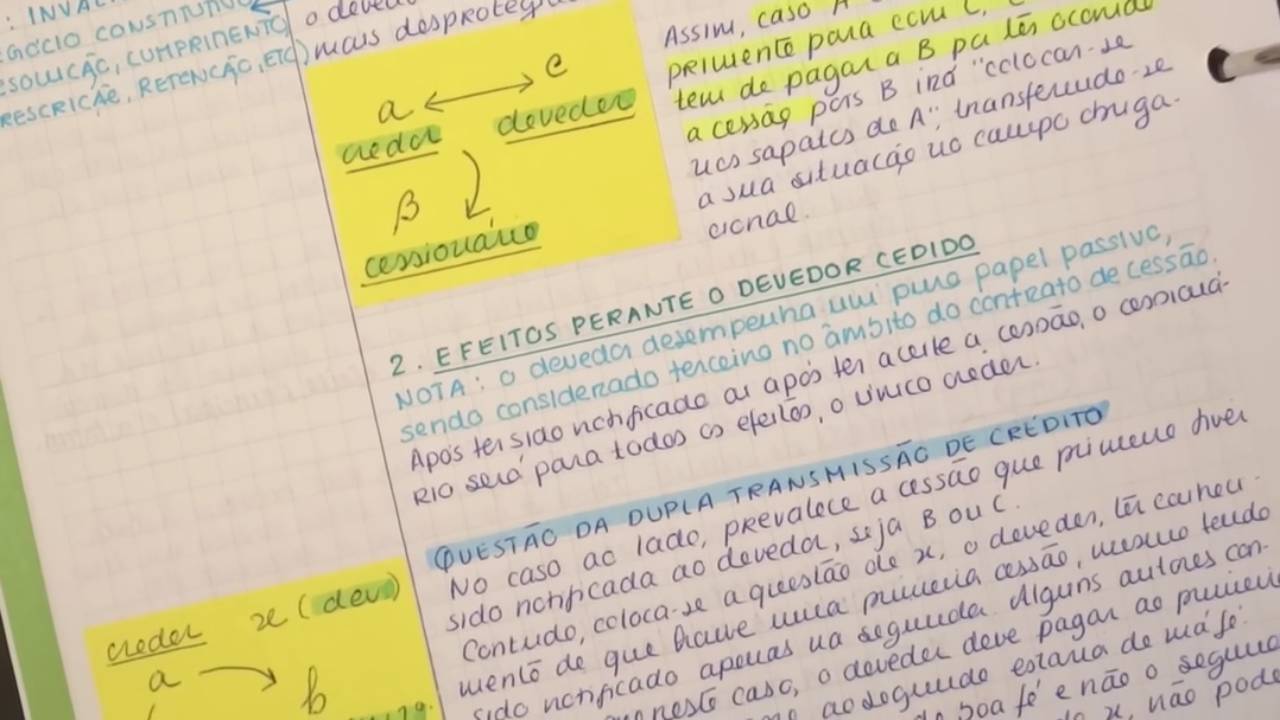 : INVALI
GÓCIO CONSTITUTIVO
ESOLUCÃO, CUMPRIMENTO,
RESCRICÃE, RETENCÃO, ETC)
o deved
mais desproteg
a ↔ c
credor devedor
β
cessionário
Assim, caso A
primento para com C, C
tem de pagar a B pa ter ocorrido
a cessão pois B irá "colocar-se
nos sapatos de A", transferindo-se
a sua situacão no campo obriga-
cional.
2. EFEITOS PERANTE O DEVEDOR CEDIDO
NOTA: o devedor desempenha um puro papel passivo,
sendo considerado terceiro no âmbito do contrato de cessão.
Após ter sido notificado ou após ter aceite a cessão, o cessioná-
RIO será para todos os efeitos, o único credor.
QUESTÃO DA DUPLA TRANSMISSÃO DE CRÉDITO
No caso ao lado, prevalece a cessão que primeiro tiver
sido notificada ao devedor, seja B ou C.
Contudo, coloca-se a questão de x, o devedor, ter conheci-
mento de que houve uma primeira cessão, mesmo tendo
sido notificado apenas na segunda. Alguns autores con-
neste caso, o devedor deve pagar ao primeir
ao segundo estaria de má fé.
boa fé e não o segund
x, não pode
credor x (dev)
a → b